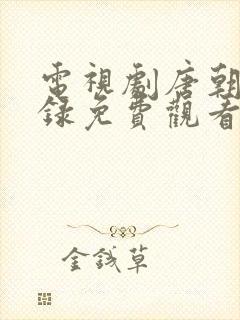 電視劇唐朝
錄免費觀看
金錢草